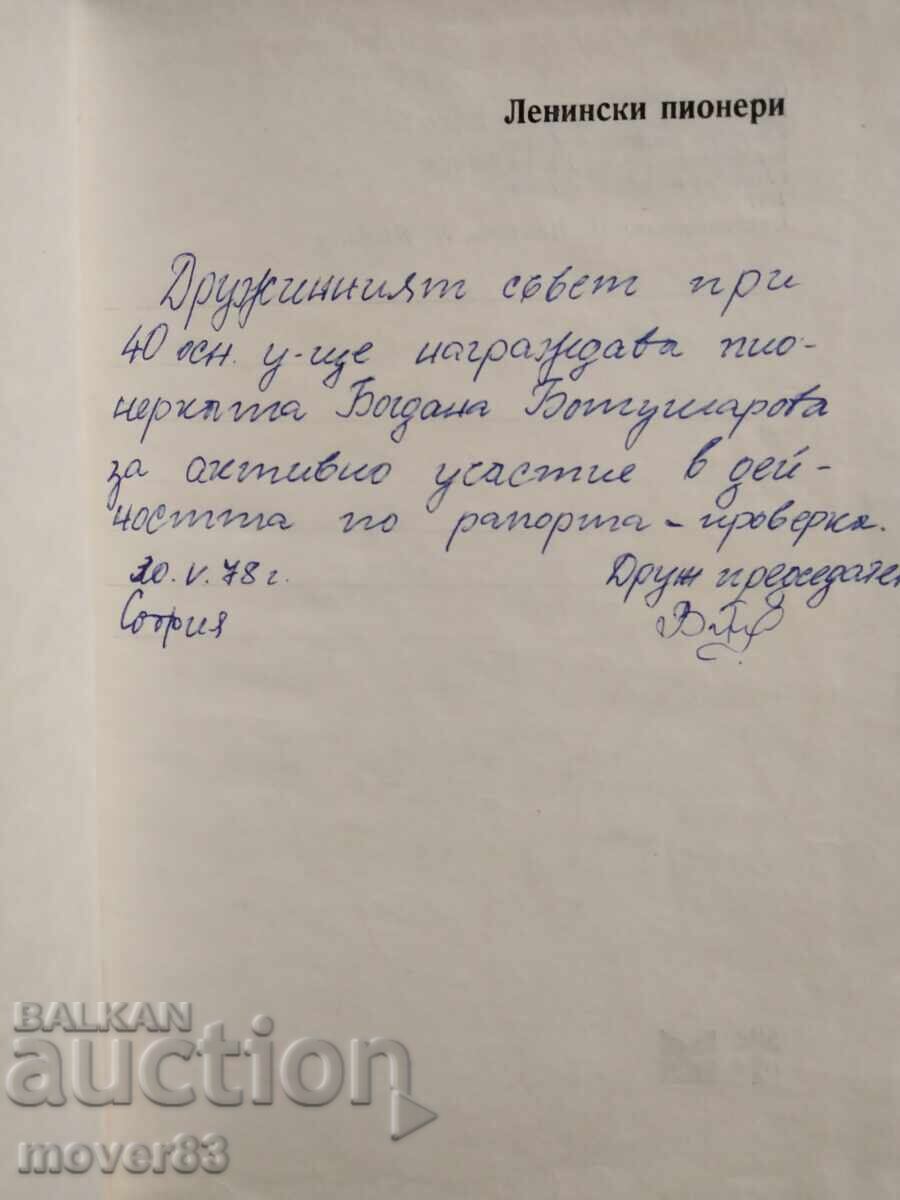 Ленински пионери
Дружинният съвет при
40 осн. у-ще награждава пио-
нерката Богдана Ботушарова
за активно участие в дей-
ността по рапорта - проверка.
30.V.78 г.
Друж председател
София
BALKAN
auction
mover83